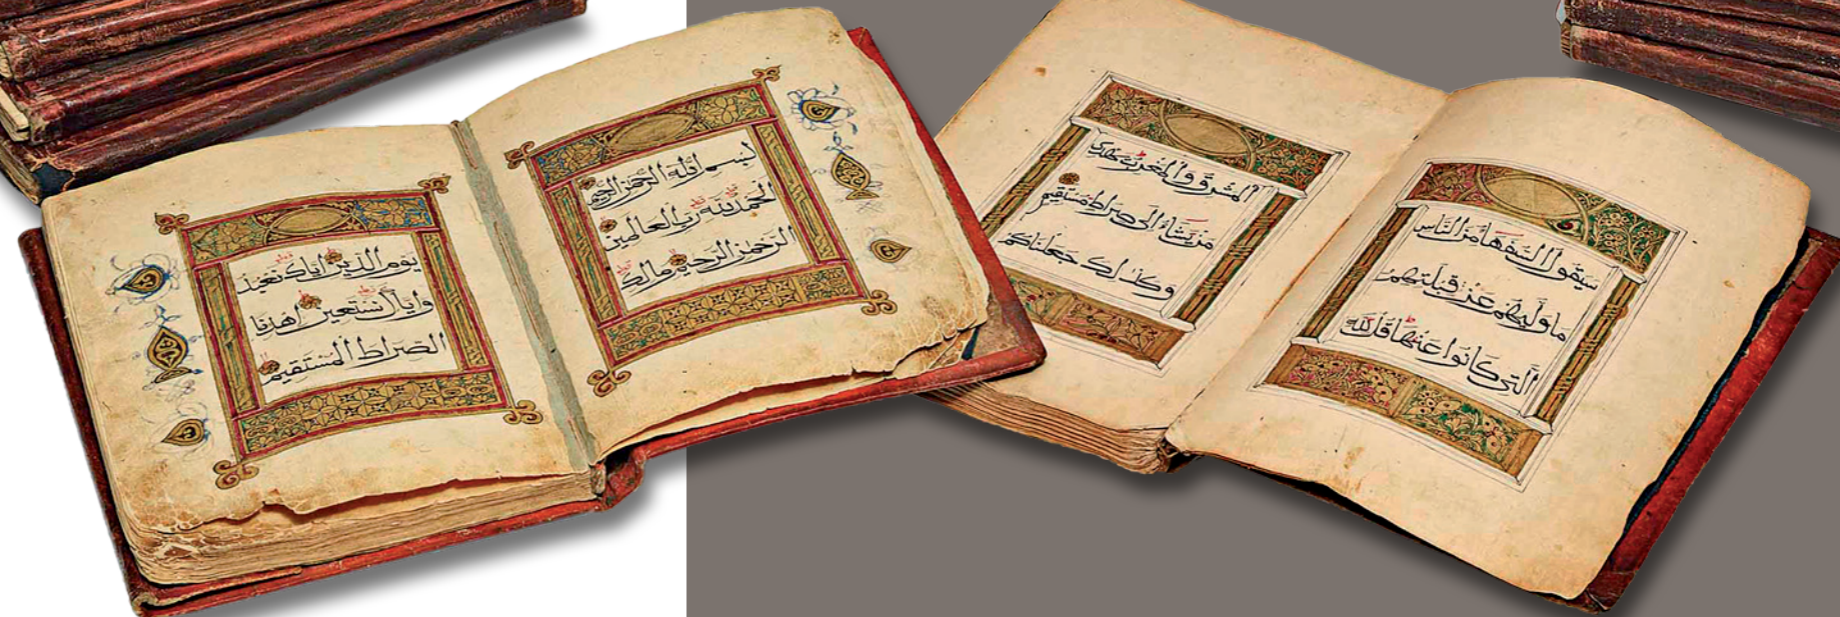 بسم الله الرحمن الرحيم
الحمد لله رب العالمين
الرحمن الرحيم مالك
يوم الدين اياك نعبد
واياك نستعين اهدنا
الصراط المستقيم
سيقول السفهاء من الناس
ما وليهم عن قبلتهم
التي كانوا عليها قل لله
المشرق والمغرب يهدي
من يشاء الى صراط مستقيم
وكذلك جعلناكم